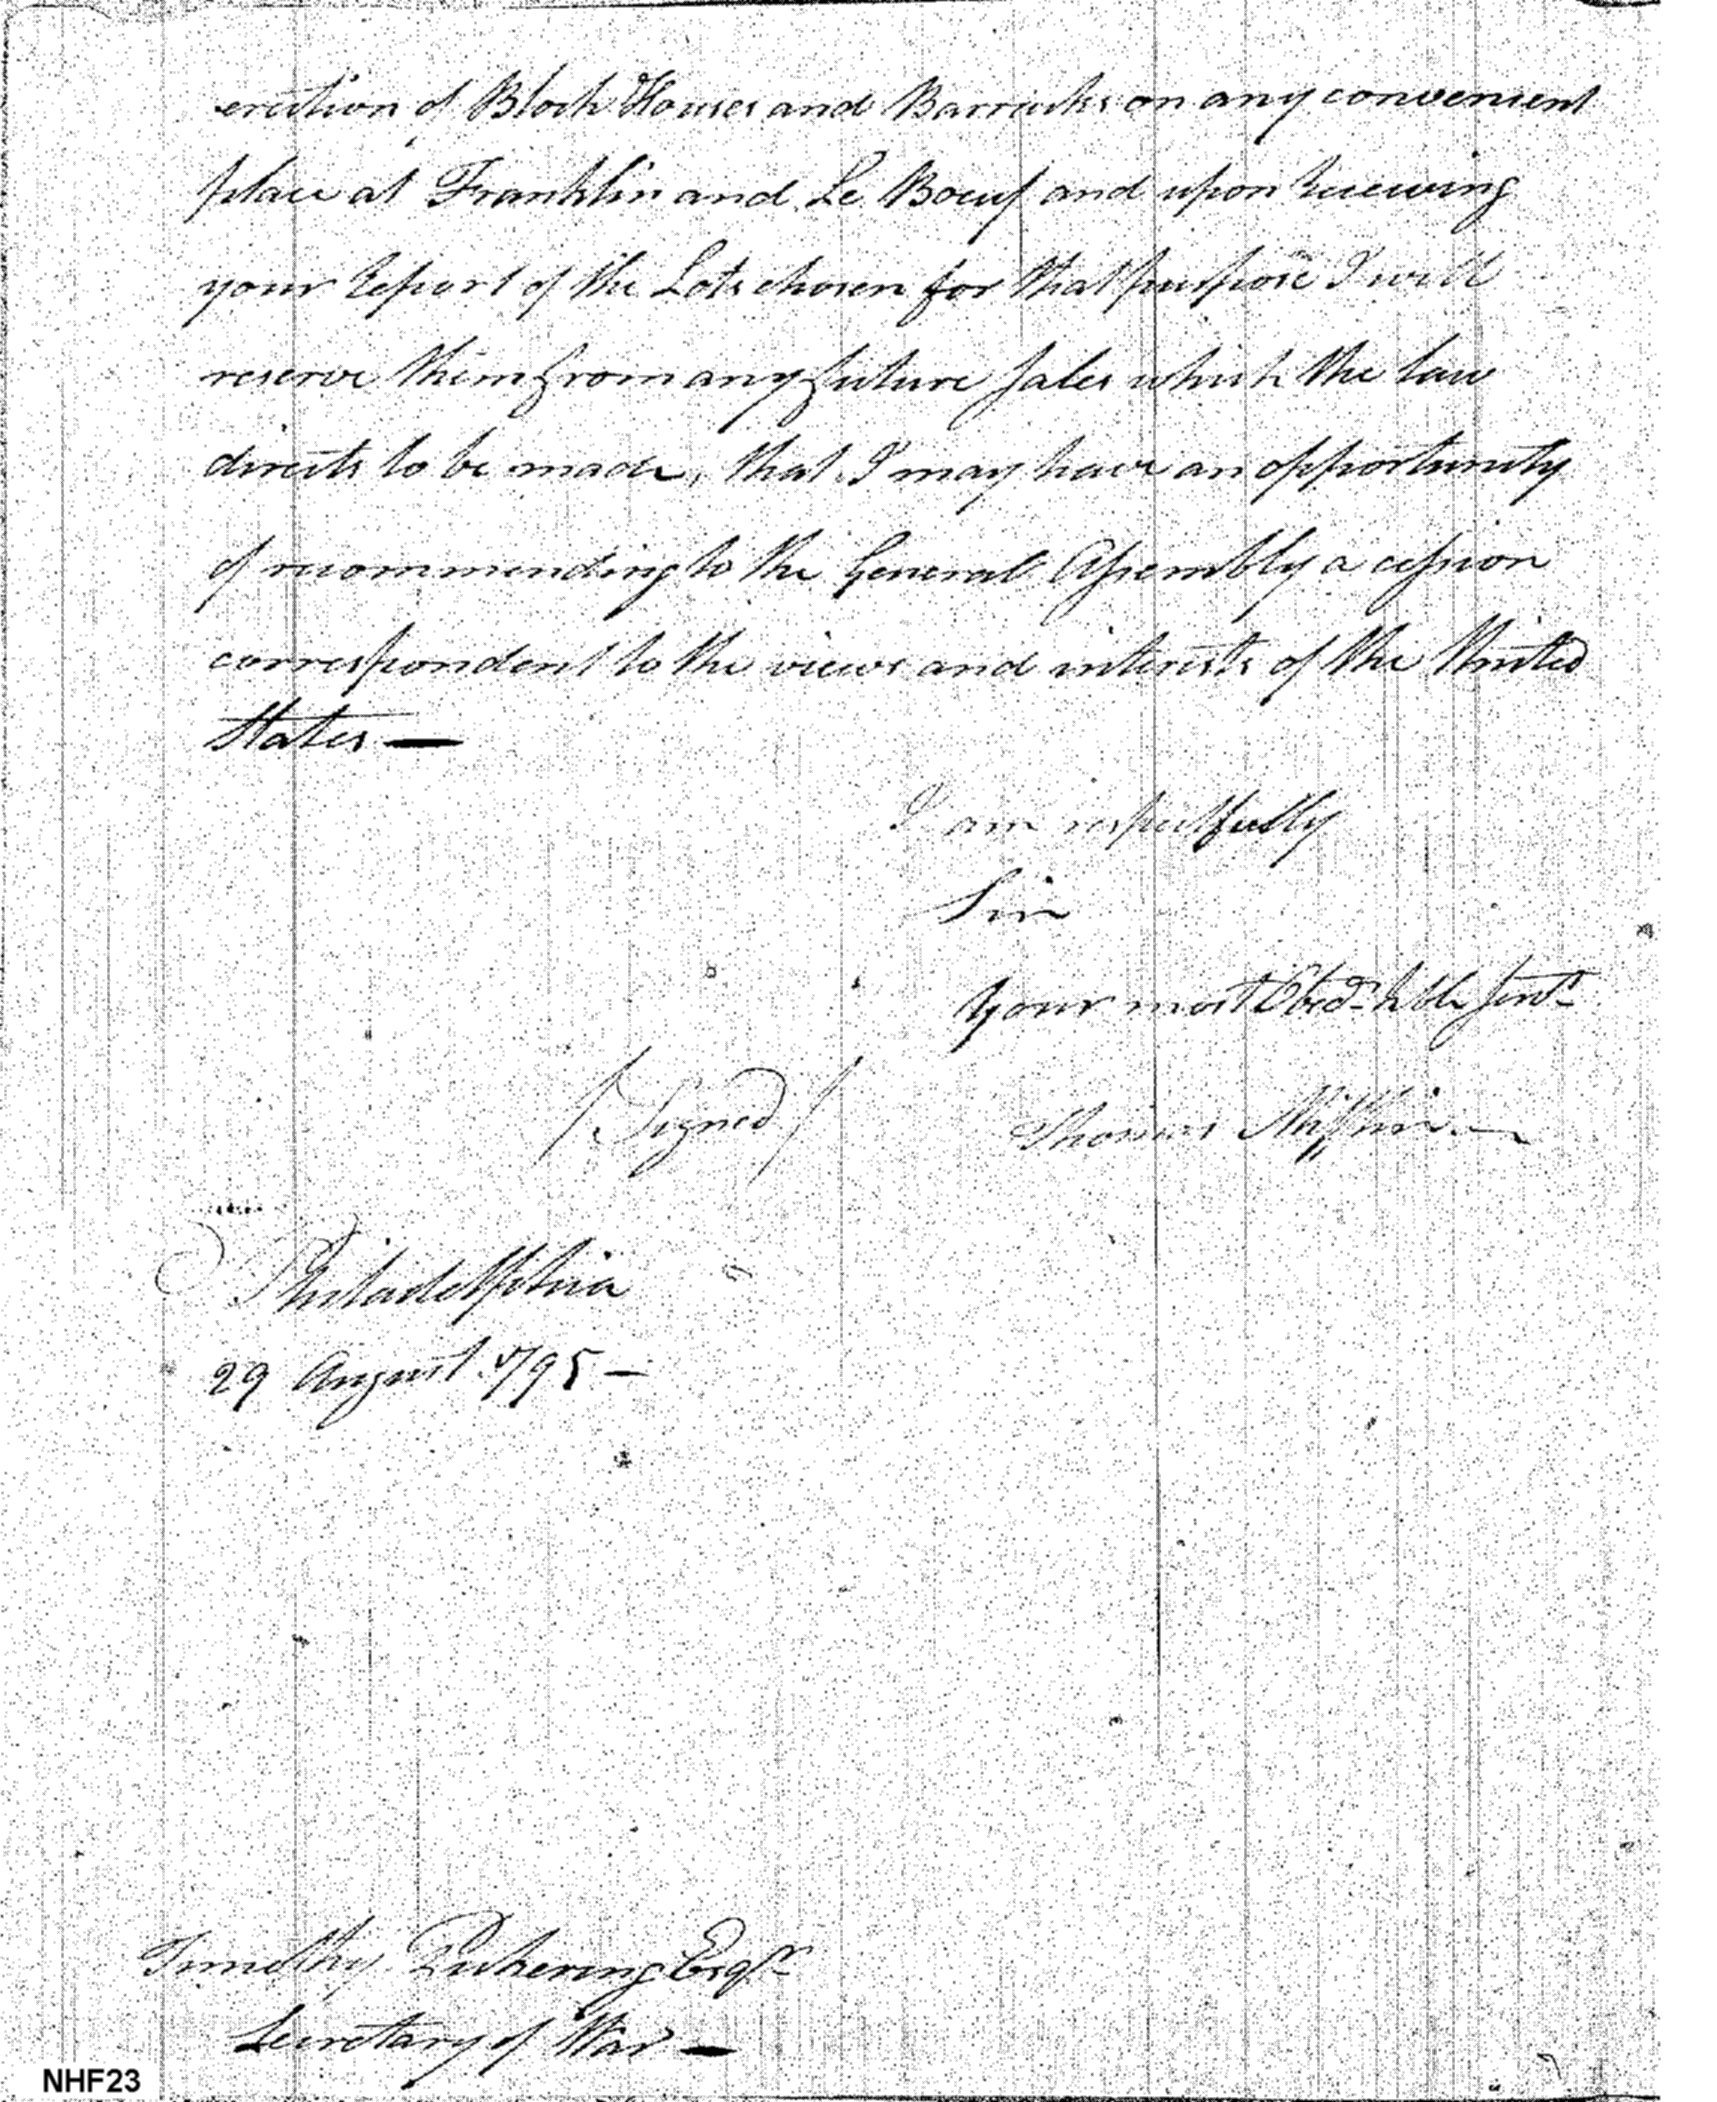 erection of Block Houses and Barracks on any convenient
place at Franklin and Le Boeuf and upon receiving
your report of the Lots chosen for that purpose I will
reserve them from any future sales which the law
directs to be made, that I may have an opportunity
of recommending to the General Assembly a cession
correspondent to the views and interests of the United
States —
I am respectfully
Sir
Your most Obedt hble Servt
/Signed/ Thomas Mifflin
Philadelphia
29 August 1795 —
Timothy Pickering Esqr
Secretary of War —
NHF23